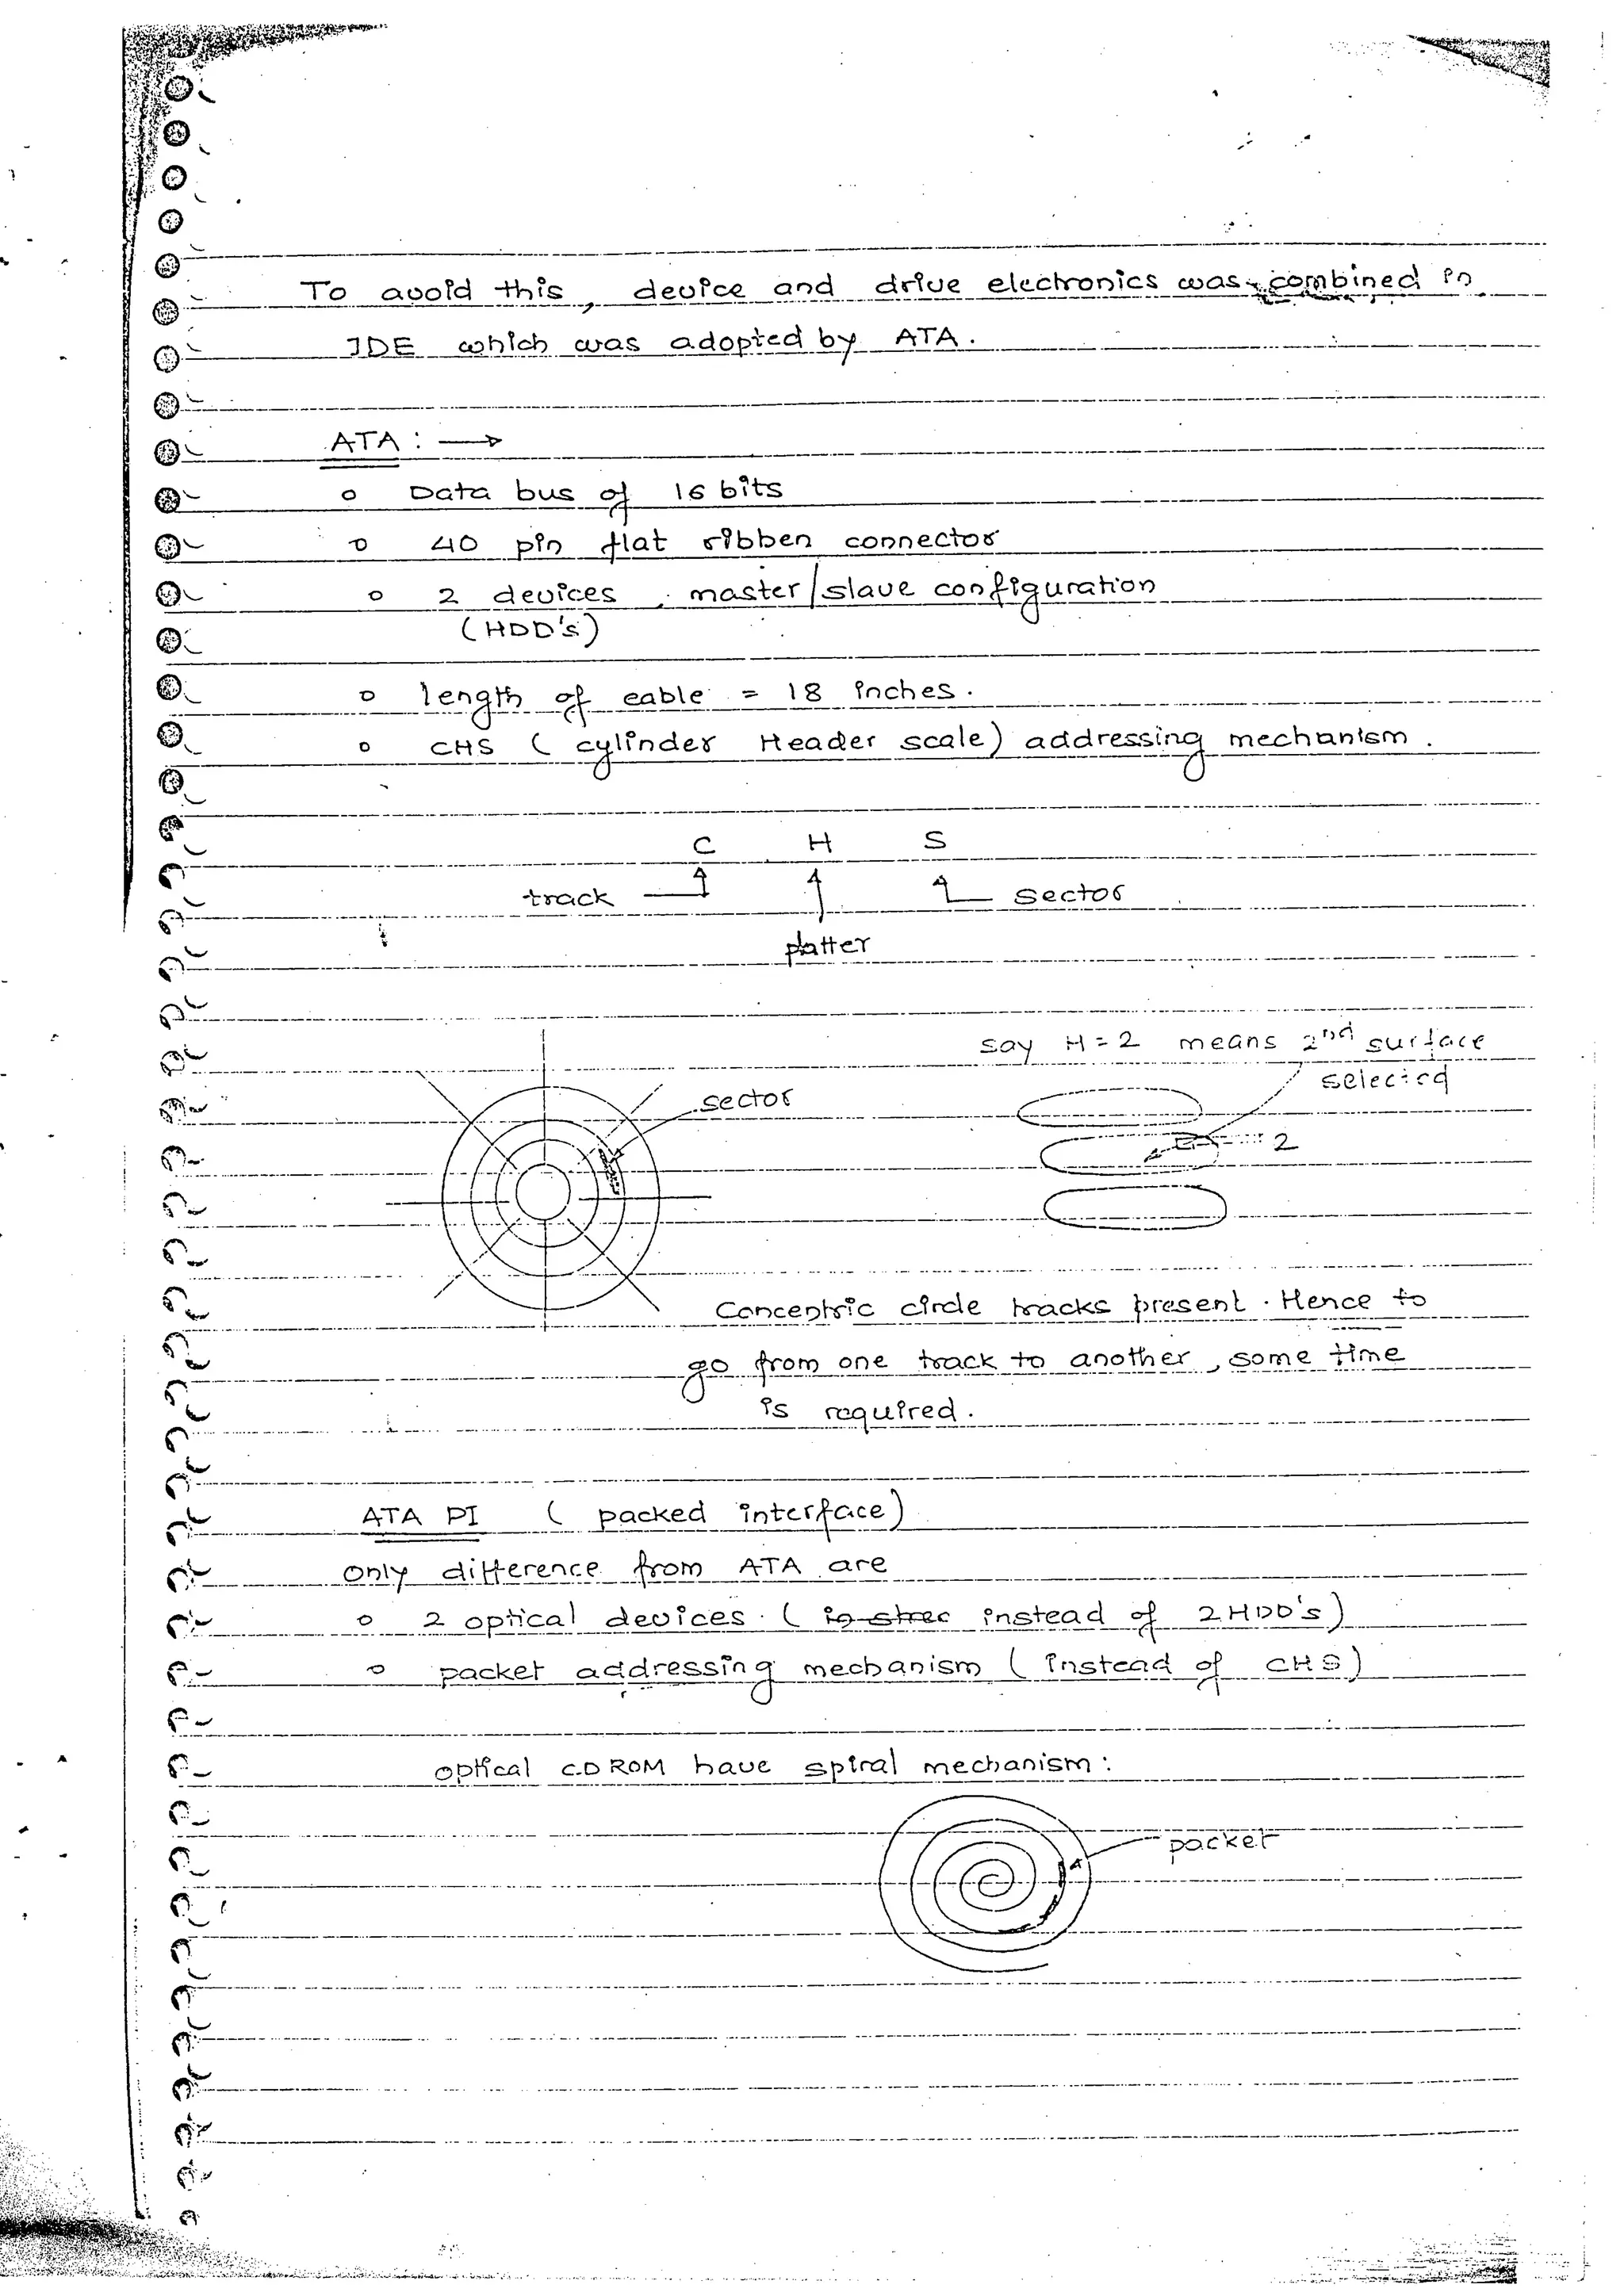 To avoid this, device and drive electronics was combined in
IDE which was adopted by ATA.
ATA : →
o Data bus of 16 bits
o 40 pin flat ribben connector
o 2 devices, master/slave configuration
(HDD's)
o length of cable = 18 inches.
o CHS ( cylinder Header scale) addressing mechanism.
C H S
track sector
platter
say H = 2 means 2nd surface
selected
sector
2
Concentric circle tracks present. Hence to
go from one track to another, some time
is required.
ATA PI ( packed interface)
only difference from ATA are
o 2 optical devices. ( instead of 2 HDD's)
o packet addressing mechanism ( instead of CHS)
optical CD ROM have spiral mechanism:
packet